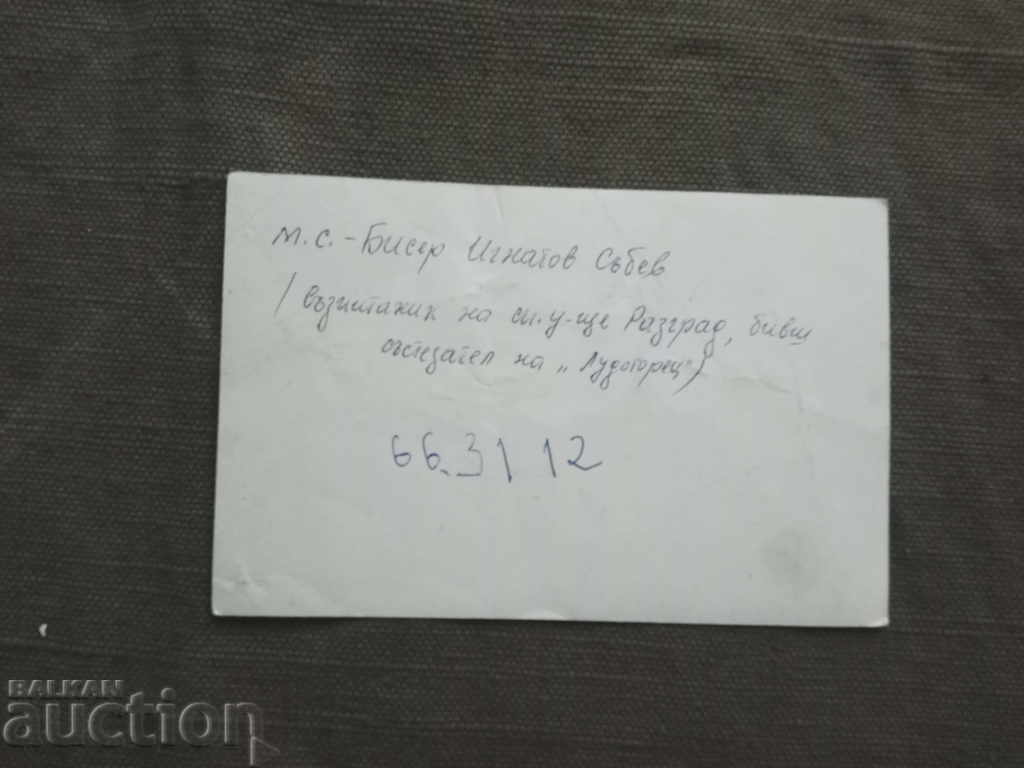 м.с. - Бисер Игнатов Събев
/ възпитаник на сп.у-ще Разград, бивш
състезател на „Лудогорец")
66.31 12
BALKAN
auction